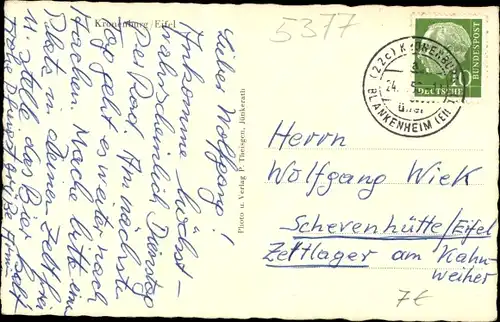 Kronenburg/Eifel
5377
Lieber Wolfgang!
Ankomme höchst-
wahrscheinlich Dienstag
Per Rad. Am nächsten
Tag geht es weiter nach
Aachen. Mache bitte einen
Platz in Deinem Zelt frei
u. stelle das Bier kalt
Photo u. Verlag P. Theisgen, Jünkerath
DEUTSCHE
BUNDESPOST
10
(22c) KRONENBURG
24.
über
BLANKENHEIM (EIFEL)
Herrn
Wolfgang Wiek
Schevenhütte/Eifel
Zeltlager am Kahn-
weiher
7€